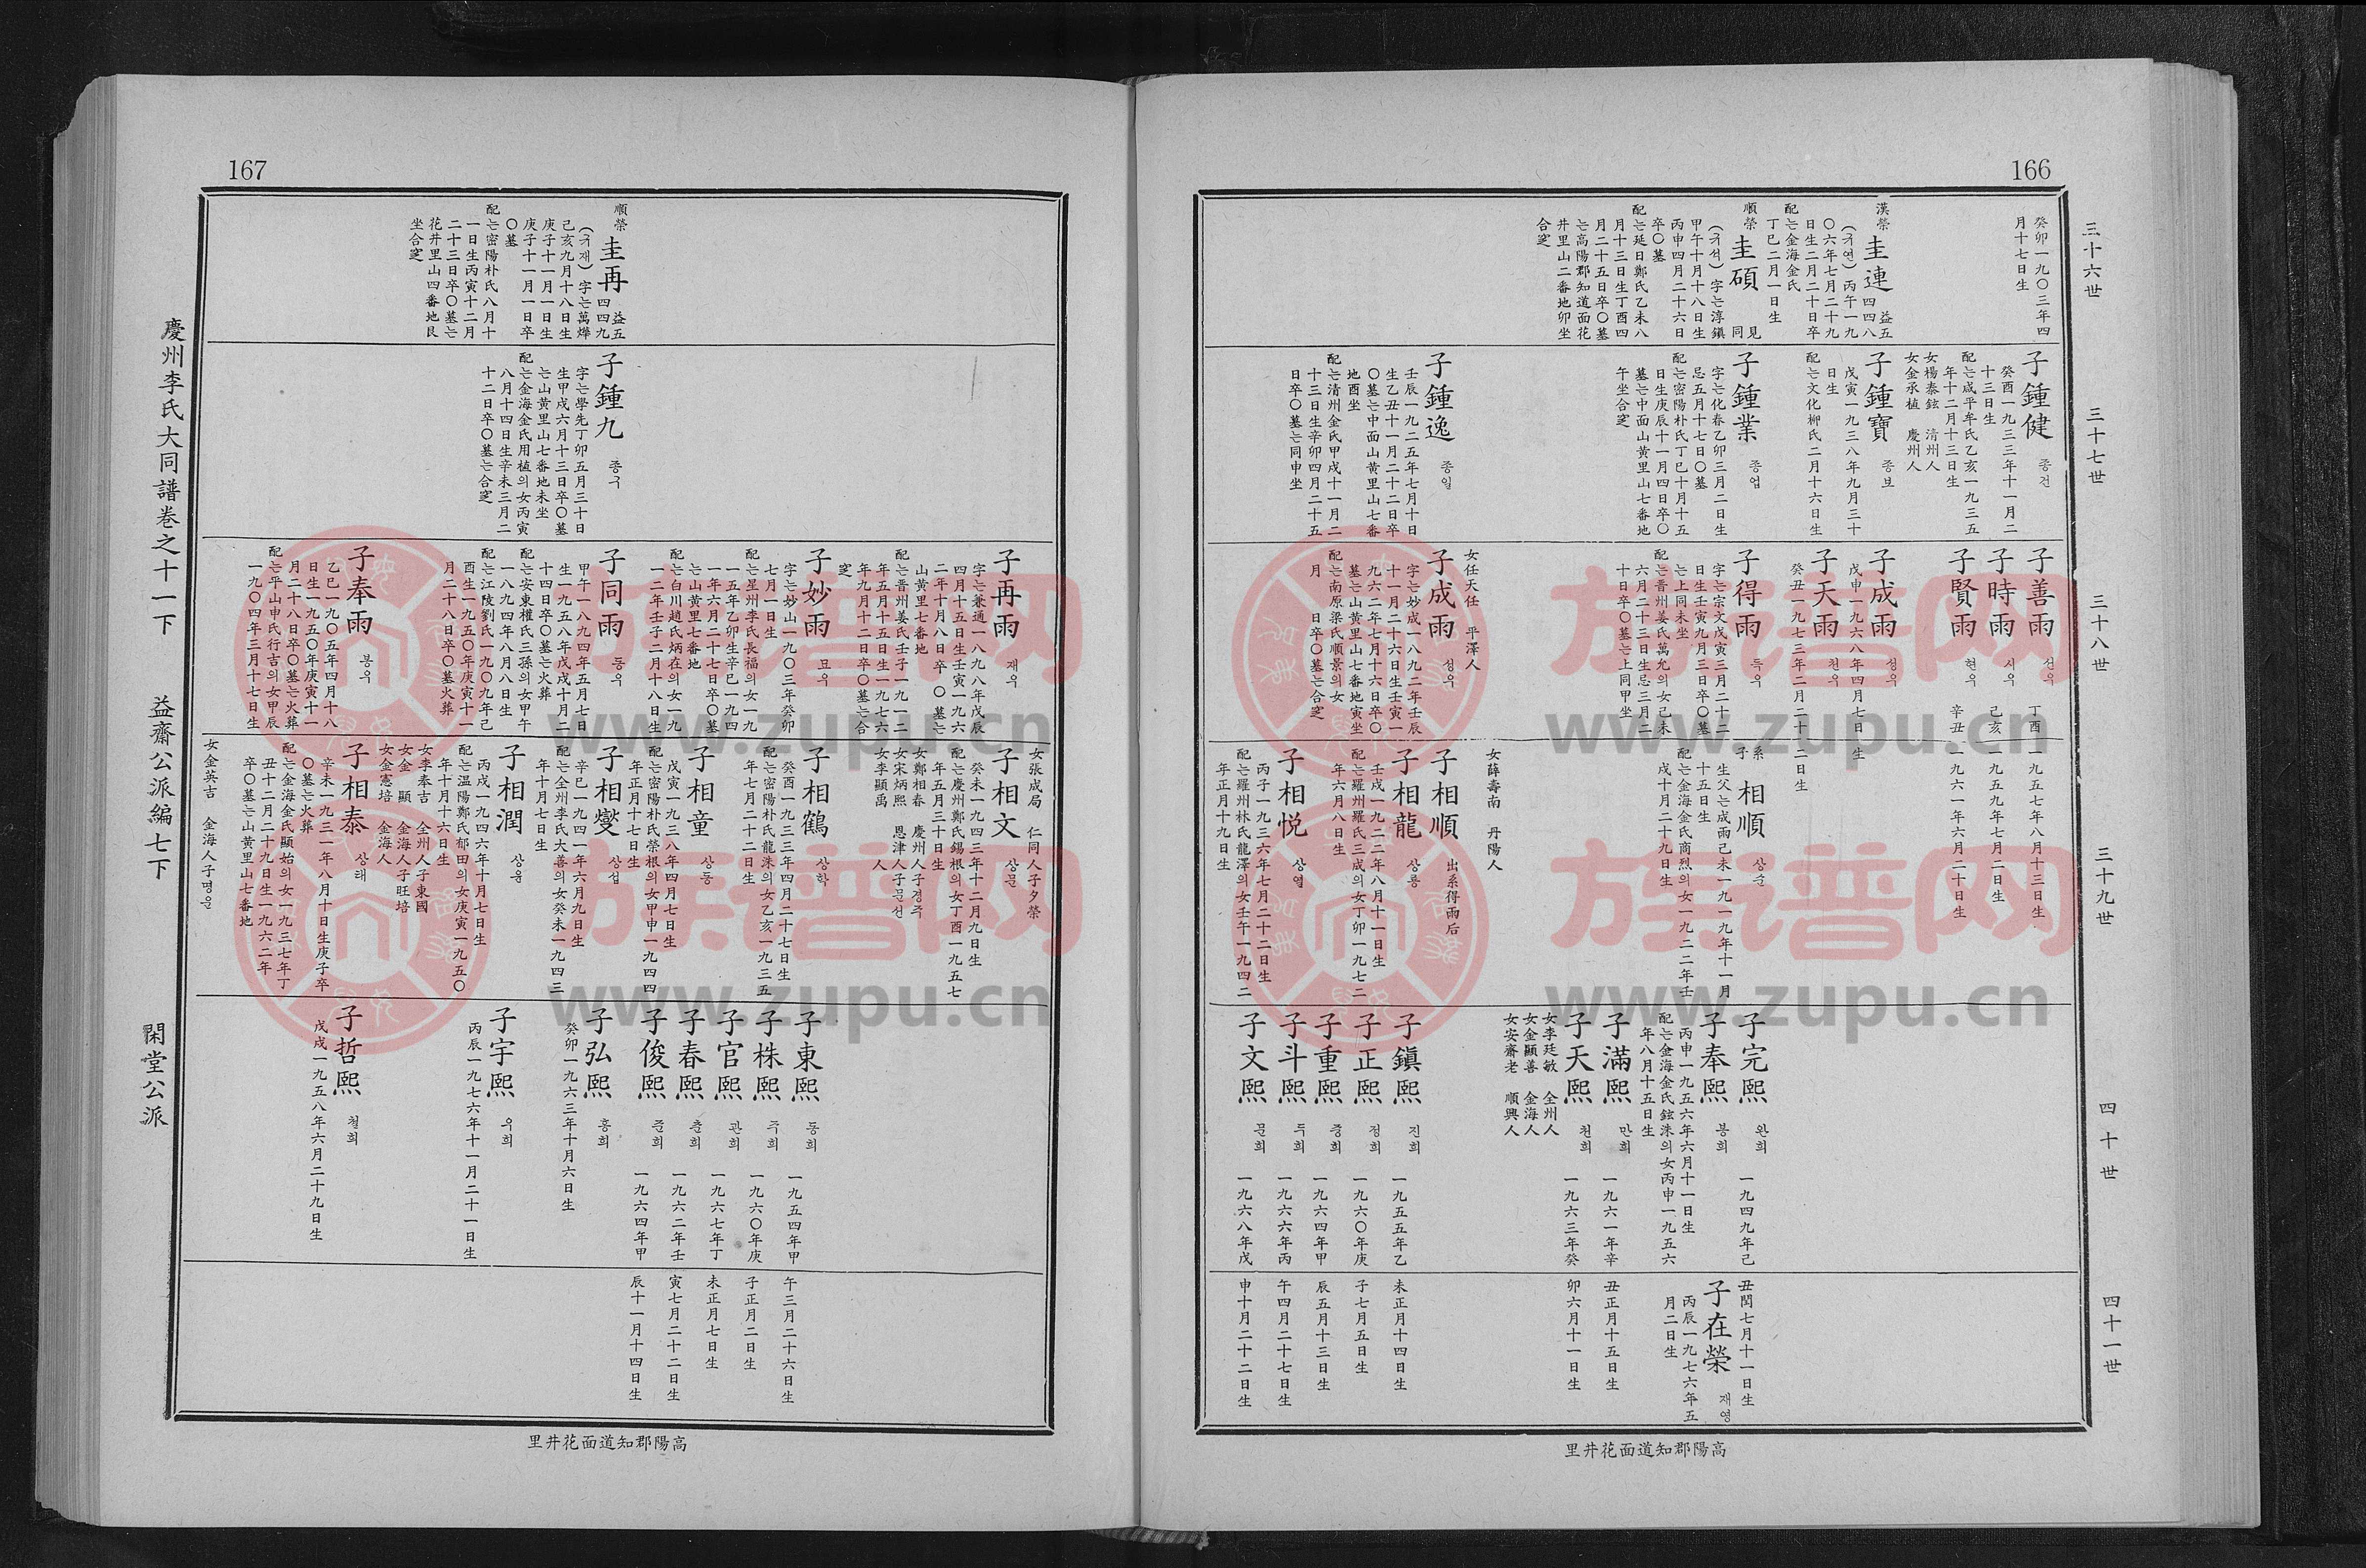 166
三十六世
癸卯一九〇三年四
月十七日生
漢榮
圭連 益五四四八
(규연)丙午一九
〇六年七月二十九
日生二月二十日卒
配는金海金氏
丁巳二月一日生
順榮
圭碩 見同
(규석)字는淳鎭
甲午十月十八日生
丙申四月二十六日
卒〇墓
配는延日鄭氏乙未八
月十三日生丁酉四
月二十五日卒〇墓
는高陽郡知道面花
井里山二番地卯坐
合窆
三十七世
子鍾健 종건
癸酉一九三三年十一月二
十三日生
配는咸平牟氏乙亥一九三五
年十二月十三日生
女楊泰鉉 清州人
女金承植 慶州人
子鍾寶 종보
戊寅一九三八年九月三十
日生
配는文化柳氏二月十六日生
子鍾業 종업
字는化春乙卯三月二日生
忌五月十七日〇墓
配는密陽朴氏丁巳十月十五
日生庚辰十一月四日卒〇
墓는中面山黄里山七番地
午坐合窆
子鍾逸 종일
壬辰一九二五年七月十日
生乙丑十一月二十二日卒
〇墓는中面山黄里山七番
地酉坐
配는清州金氏甲戌十一月二
十三日生辛卯四月二十五
日卒〇墓는同申坐
三十八世
子善雨 선우 丁酉一九五七年八月十三日生
子時雨 시우 己亥一九五九年七月二日生
子賢雨 현우 辛丑一九六一年六月二十日生
子成雨 성우
戊申一九六八年四月七日生
子天雨 천우
癸丑一九七三年二月二十二日生
子得雨 득우
字는宗文戊寅三月二十二
日生壬寅九月三日卒〇墓
는上同未坐
配는晋州姜氏萬允의女己未
六月二十三日生忌三月二
十日卒〇墓는上同甲坐
女任天任 平澤人
子成雨 성우
字는妙成一八九二年壬辰
十一月二十六日生壬寅一
九六二年七月十六日卒〇
墓는山黄里山七番地寅坐
配는南原梁氏順景의女
月 日卒〇墓는合窆
三十九世
系子 相順 상순
生父는成雨己未一九一九年十一月
十五日生
配는金海金氏商烈의女一九二二年壬
戌十月二十九日生
女薛壽南 丹陽人
子相順 出系得雨后
子相龍 상룡
壬戌一九二二年八月十一日生
配는羅州羅氏三成의女丁卯一九七二
年六月八日生
子相悅 상열
丙子一九三六年七月二十二日生
配는羅州林氏龍澤의女壬午一九四二
年正月十九日生
四十世
子完熙 완희 一九四九年己
丑閏七月十一日生
子奉熙 봉희
丙申一九五六年六月十一日生
配는金海金氏鉉洙의女丙申一九五六
年八月十五日生
子滿熙 만희 一九六一年辛
丑正月十五日生
子天熙 천희 一九六三年癸
卯六月十一日生
女李廷敏 全州人
女金顯善 金海人
女安齋老 順興人
子鎭熙 진희 一九五五年乙
未正月十四日生
子正熙 정희 一九六〇年庚
子七月五日生
子重熙 중희 一九六四年甲
辰五月十三日生
子斗熙 두희 一九六六年丙
午四月二十七日生
子文熙 문희 一九六八年戊
申十月二十二日生
四十一世
子在榮 재영
丙辰一九七六年五
月二日生
里井花面道知郡陽高
167
順榮
圭再 益五四四九
(규재)字는萬燁
己亥九月十八日生
庚子十一月一日生
庚子十一月一日卒
〇墓
配는密陽朴氏八月十
一日生丙寅十二月
二十三日卒〇墓는
花井里山四番地艮
坐合窆
子鍾九 종구
字는學先丁卯五月三十日
生甲戌六月十三日卒〇墓
는山黄里山七番地未坐
配는金海金氏用植의女丙寅
八月十四日生辛未三月二
十二日卒〇墓는合窆
子再雨 재우
字는兼通一八九八年戊辰
四月十五日生壬寅一九六
二年十月八日卒〇墓는
山黄里七番地
配는晋州姜氏壬子一九一二
年五月十五日生一九七六
年九月十二日卒〇墓는合
窆
子妙雨 묘우
字는妙山一九〇三年癸卯
七月一日生
配는星州李氏長福의女一九
一五年乙卯生辛巳一九四
一年六月二十七日卒〇墓
는山黄里七番地
配는白川趙氏炳在의女一九
一二年壬子二月十八日生
子同雨 동우
甲午一八九四年五月七日
生一九五八年戊戌十月二
十四日卒〇墓는火葬
配는安東權氏三孫의女甲午
一八九四年八月八日生
配는江陵劉氏一九〇九年己
酉生一九五〇年庚寅十一
月二十八日卒〇墓火葬
子奉雨 봉우
乙巳一九〇五年四月十八
日生一九五〇年庚寅十一
月二十八日卒〇墓는火葬
配는平山申氏行吉의女甲辰
一九〇四年三月十七日生
女張成局 仁同人子夕榮
子相文 상문
癸未一九四三年十二月九日生
配는慶州鄭氏錫根의女丁酉一九五七
年五月三十日生
女鄭相春 慶州人子경주
女宋炳熙 恩津人子문선
女李顯禹 人
子相鶴 상학
癸酉一九三三年四月二十七日生
配는密陽朴氏龍洙의女乙亥一九三五
年七月二十二日生
子相童 상동
戊寅一九三八年四月七日生
配는密陽朴氏榮根의女甲申一九四四
年正月十七日生
子相燮 상섭
辛巳一九四一年六月九日生
配는全州李氏大善의女癸未一九四三
年十月七日生
子相潤 상윤
丙戌一九四六年十月七日生
配는温陽鄭氏郁田의女庚寅一九五〇
年十月十六日生
女李奉吉 全州人子東國
女金 顯 金海人子旺培
女金憲培 金海人
子相泰 상태
辛未一九三一年八月十日生庚子卒
〇墓는火葬
配는金海金氏顯始의女一九三七年丁
丑十二月二十九日生一九六二年
卒〇墓는山黄里山七番地
女金英吉 金海人子명운
子東熙 동희 一九五四年甲
午三月二十六日生
子株熙 주희 一九六〇年庚
子正月二日生
子官熙 관희 一九六七年丁
未正月七日生
子春熙 춘희 一九六二年壬
寅七月二十二日生
子俊熙 준희 一九六四年甲
辰十一月十四日生
子弘熙 홍희
癸卯一九六三年十月六日生
子宇熙 우희
丙辰一九七六年十一月二十一日生
子哲熙 철희
戊戌一九五八年六月二十九日生
慶州李氏大同譜卷之十一下 益齋公派編七下 閑堂公派
里井花面道知郡陽高
族谱网
www.zupu.cn
族谱网
www.zupu.cn
族谱网
www.zupu.cn
族谱网
www.zupu.cn